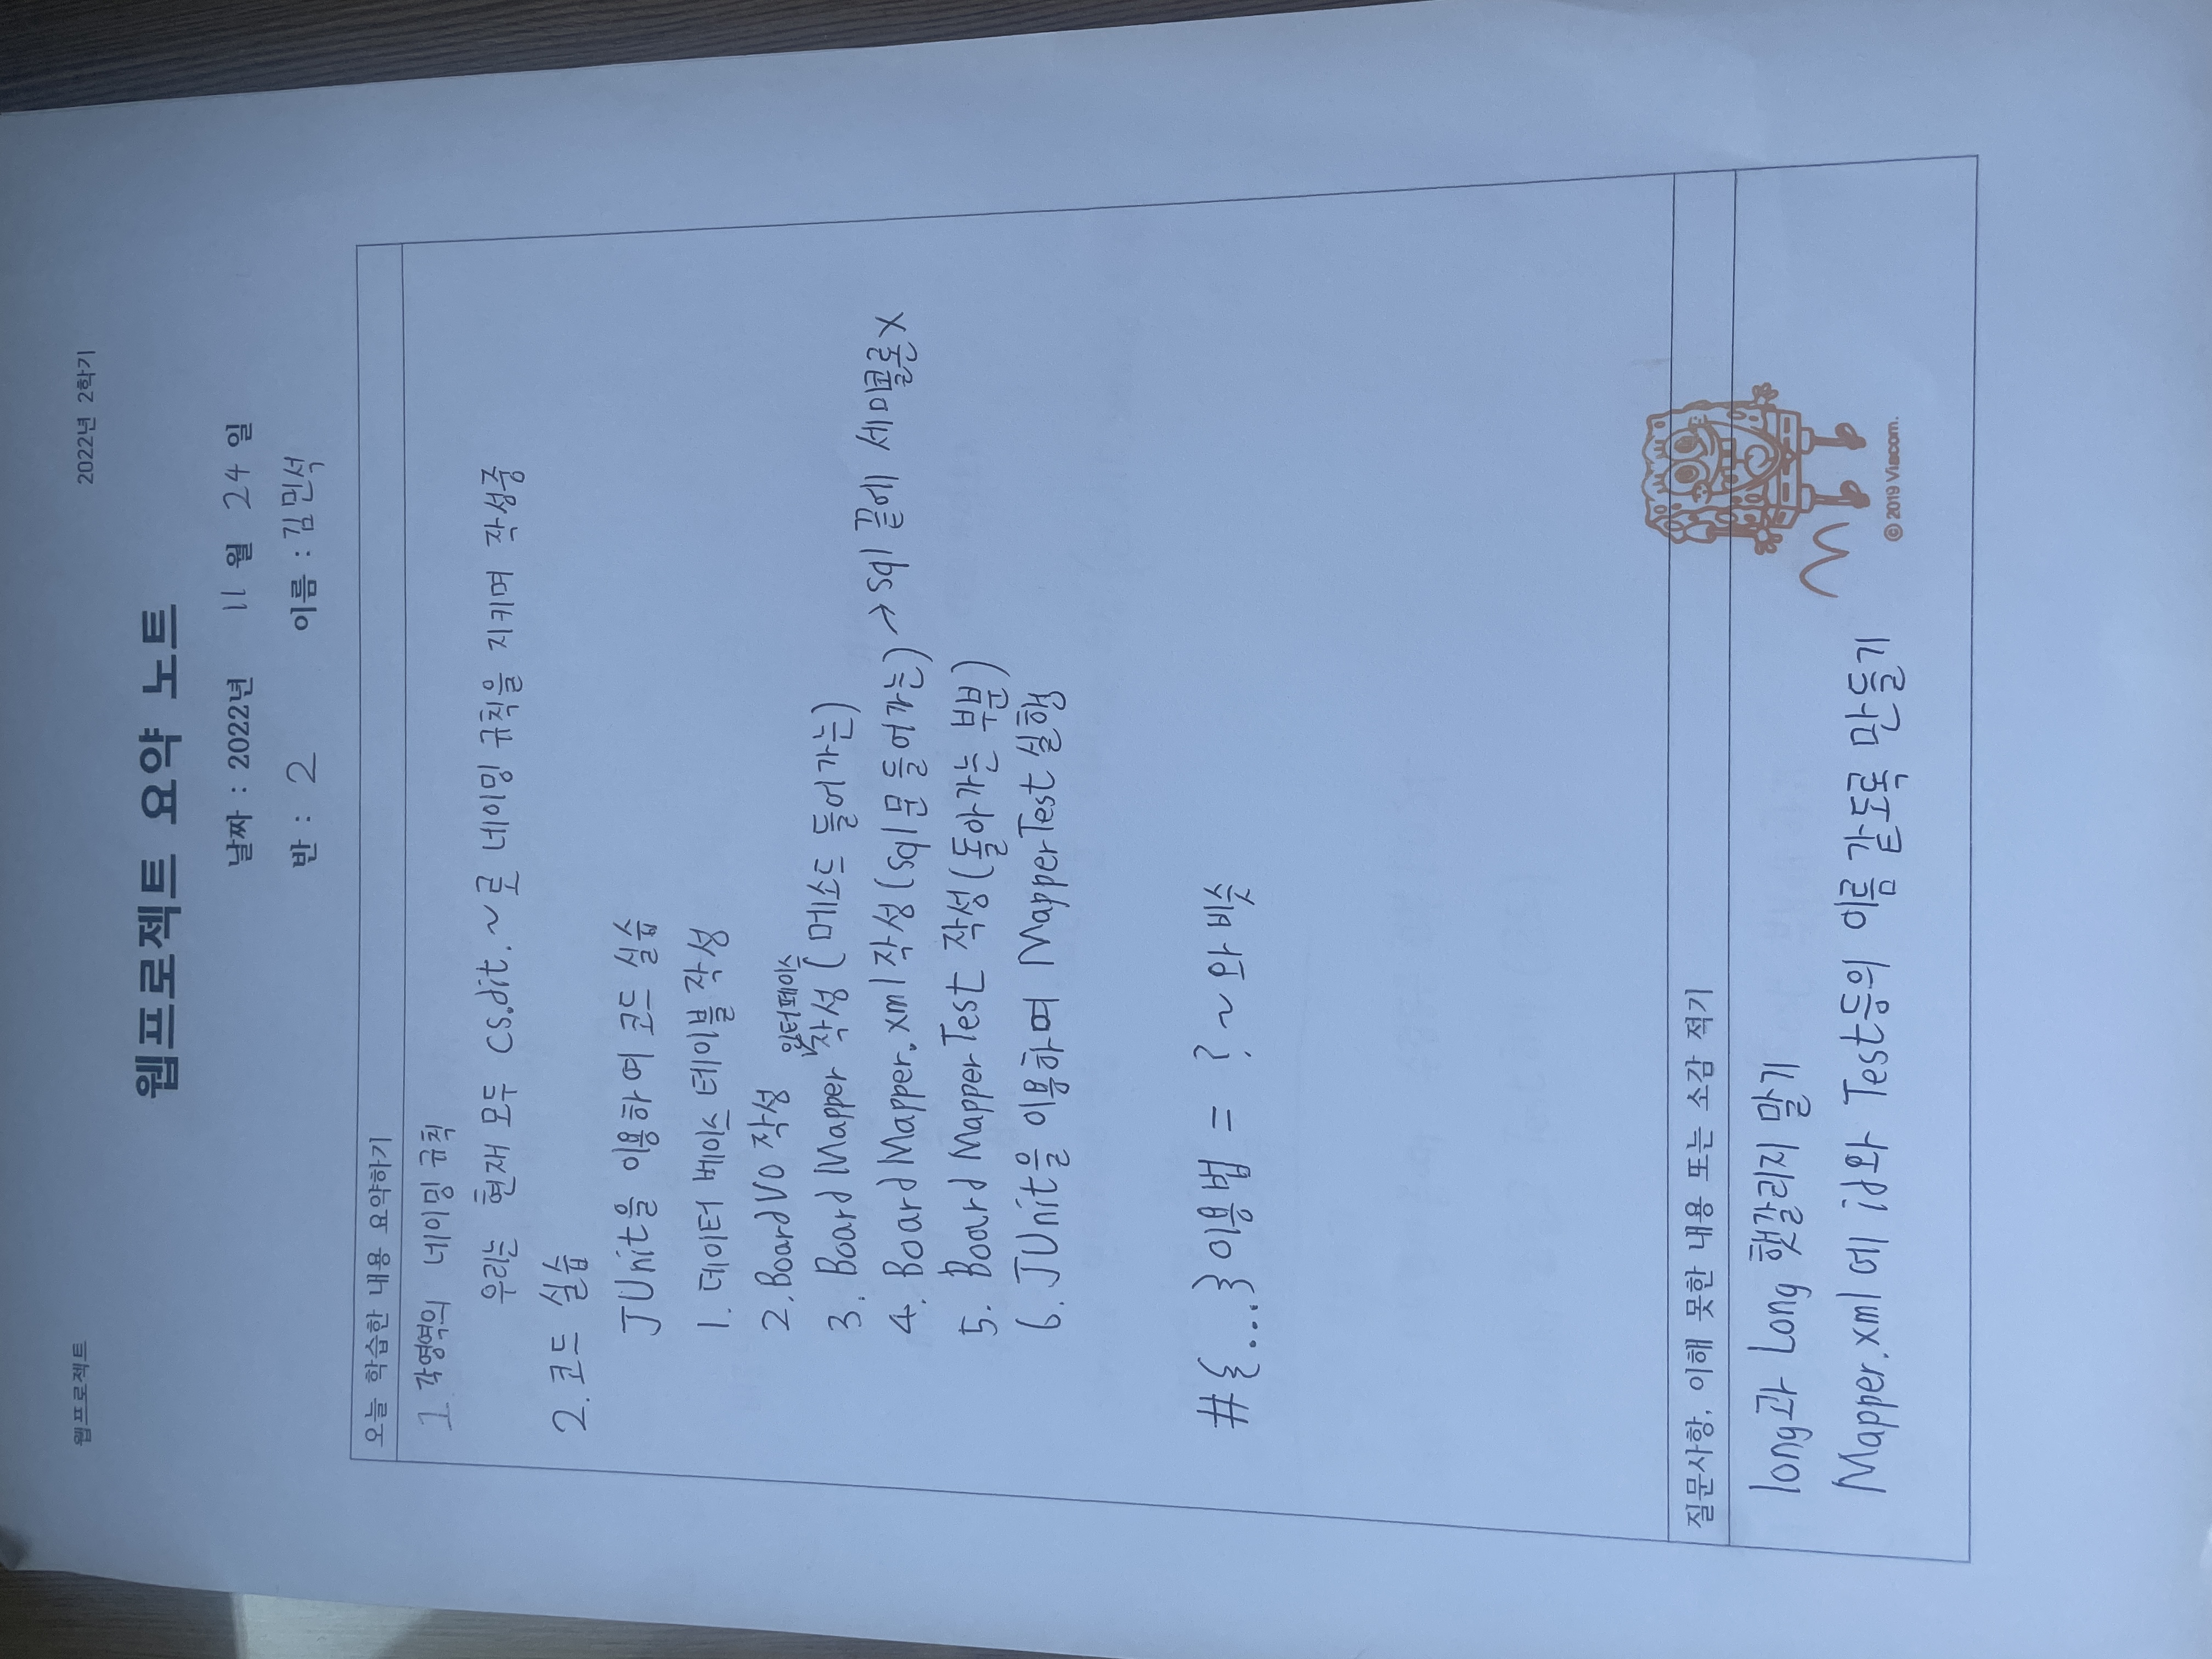 웹프로젝트
2022년 2학기
웹프로젝트 요약 노트
날짜 : 2022년 11 월 24 일
반 : 2 이름 : 김민석
오늘 학습한 내용 요약하기
1. 각영역의 네이밍 규칙
우리는 현재 모두 cs.dit.~로 네이밍 규칙을 지키며 작성중
2. 코드 실습
JUnit을 이용하여 코드 실습
1. 데이터 베이스 테이블 작성
2. BoardVO 작성
인터페이스
3. Board Mapper 작성 (메소드 들어가는)
4. Board Mapper.xml 작성 (sql문 들어가는) → sql 끝에 세미콜론 X
5. Board MapperTest 작성 (돌아가는 부분)
6. JUnit을 이용하여 MapperTest 실행
#{...} 이용법 = ? ~ 와 비슷
질문사항, 이해 못한 내용 또는 소감 적기
long과 Long 햇갈리지 말기
Mapper.xml에 id와 Test등의 이름 같도록 만들기
© 2019 Viacom.